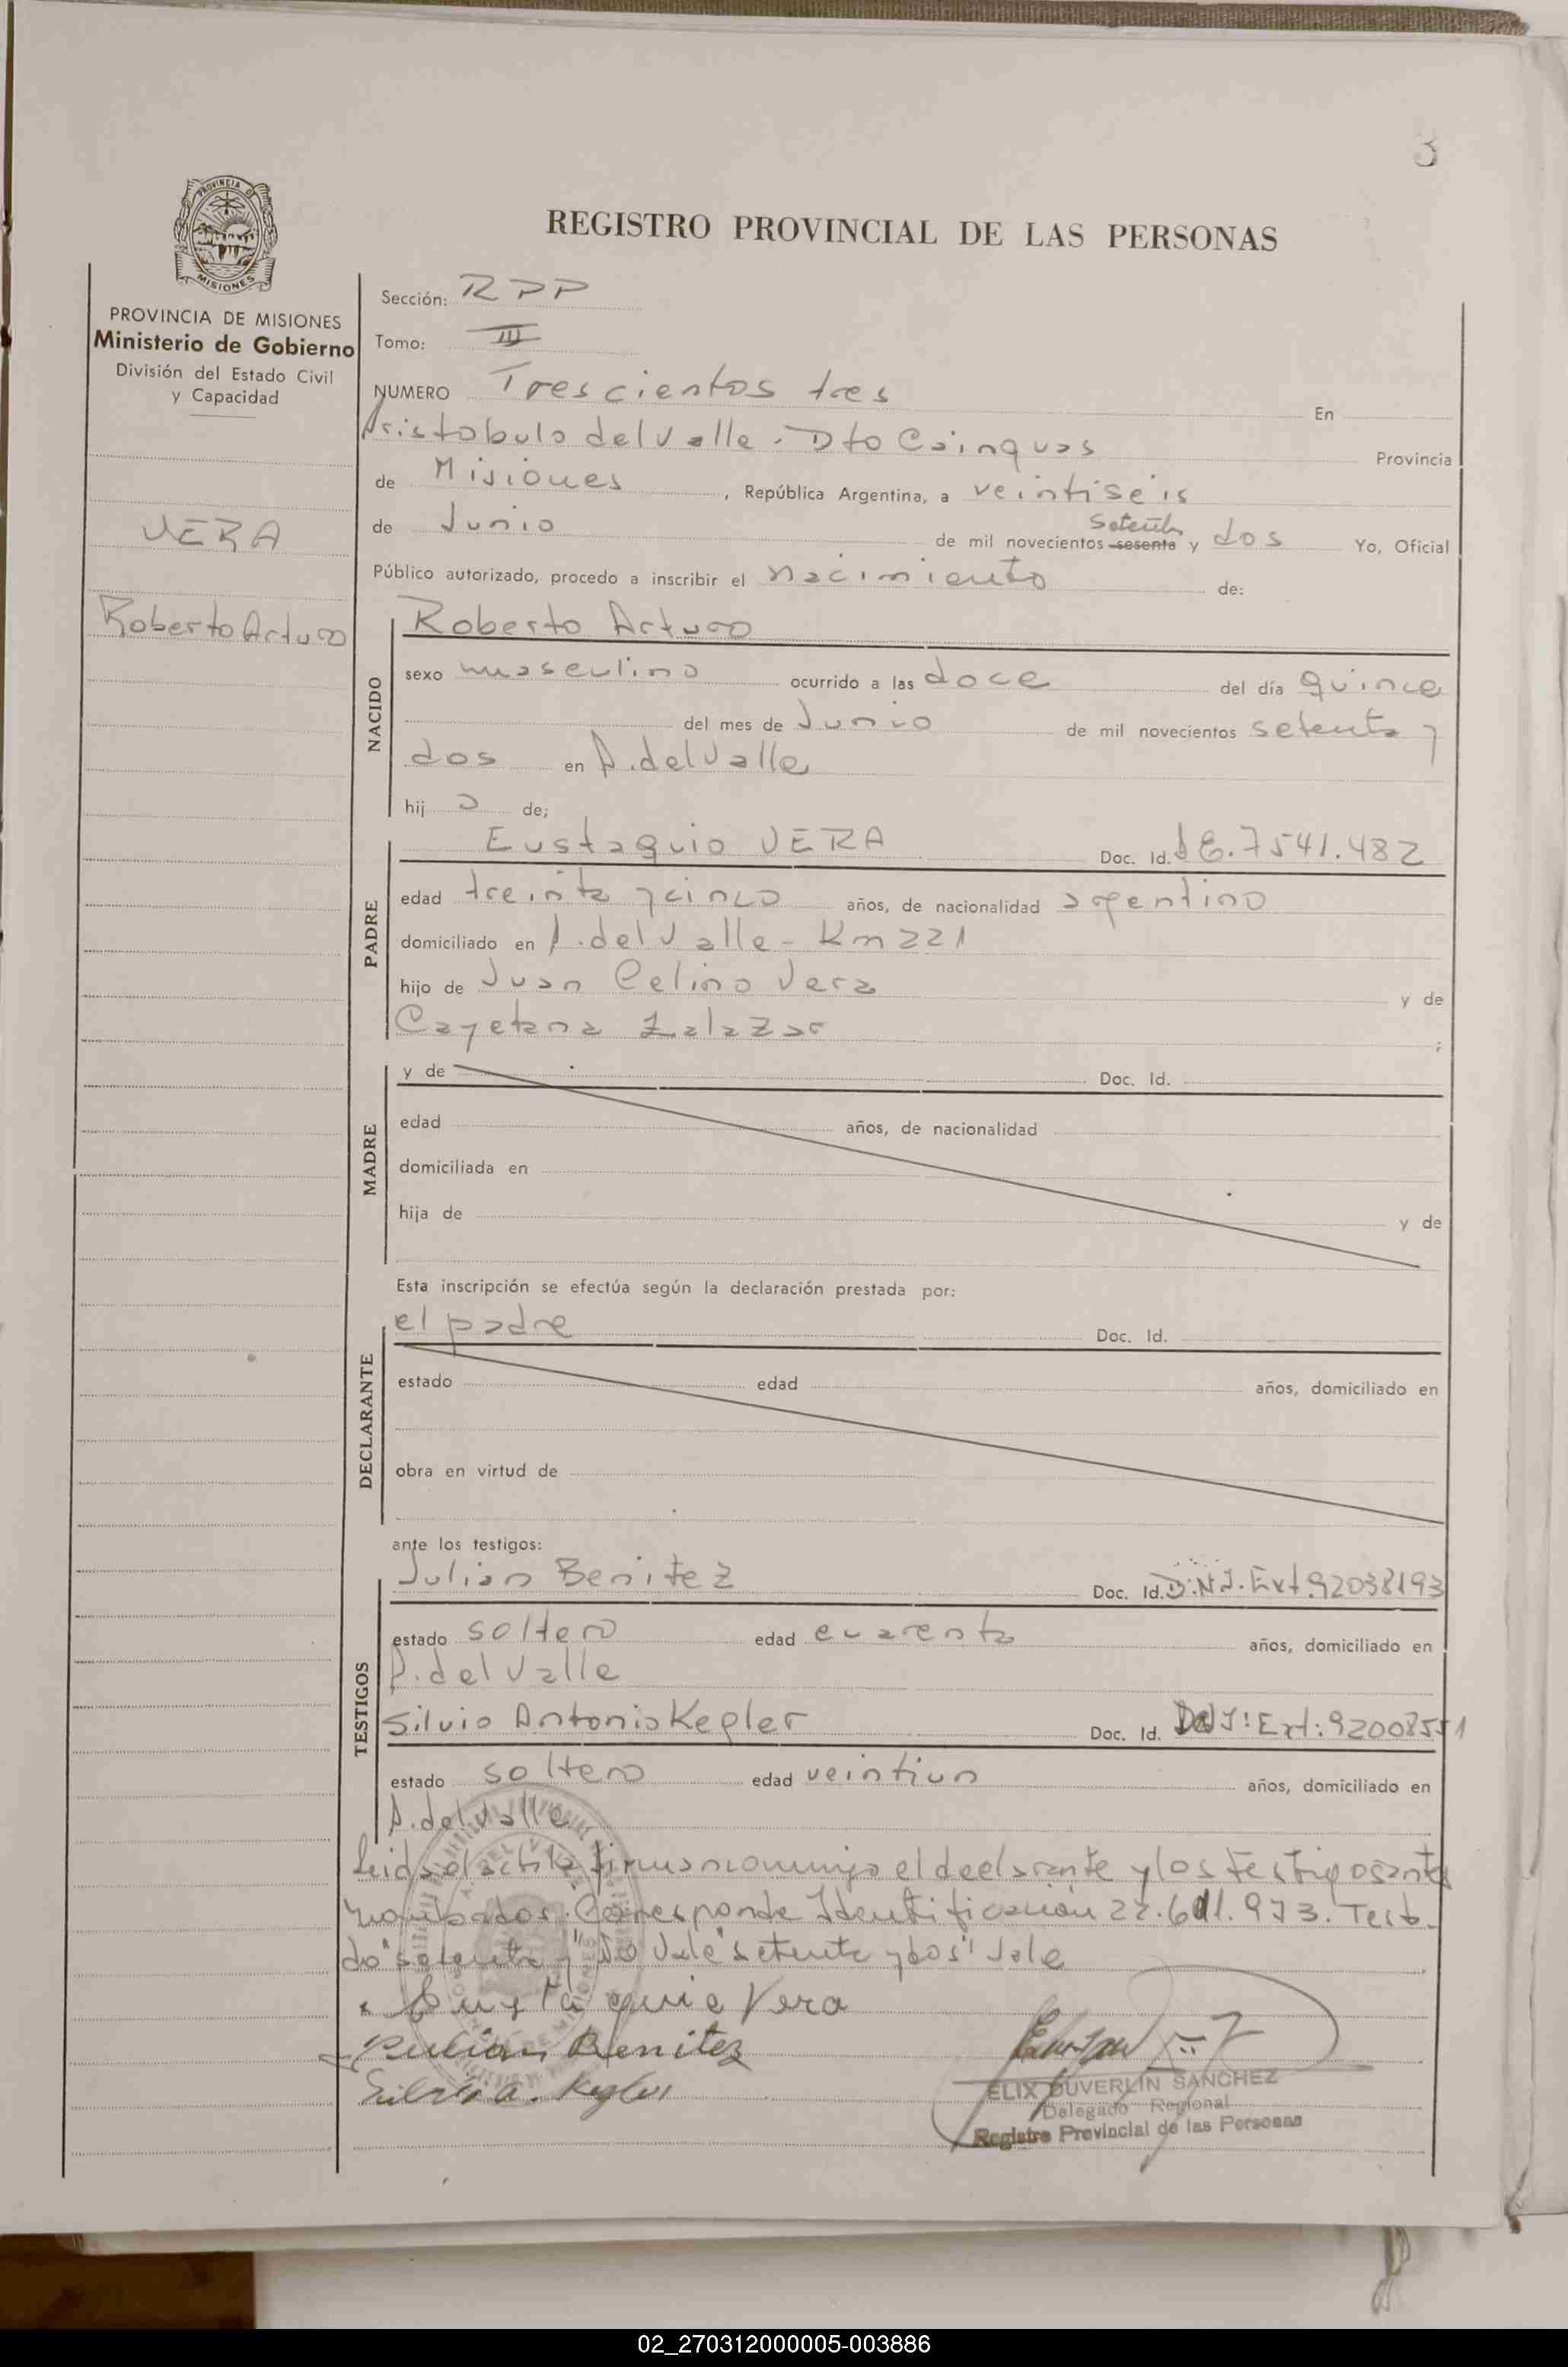 3
PROVINCIA DE
MISIONES
REGISTRO PROVINCIAL DE LAS PERSONAS
PROVINCIA DE MISIONES
Ministerio de Gobierno
División del Estado Civil
y Capacidad
VERA
Roberto Arturo
Sección: RPP
Tomo: III
NUMERO Trescientos tres En
Aristobulo del Valle. Dto Cainguas Provincia
de Misiones, República Argentina, a veintiseis
setenta
de Junio de mil novecientos sesenta y dos Yo, Oficial
Público autorizado, procedo a inscribir el nacimiento de:
NACIDO
Roberto Arturo
sexo masculino ocurrido a las doce del día quince
del mes de Junio de mil novecientos setenta y
dos en A. del Valle
hij o de;
PADRE
Eustaquio VERA Doc. Id. LE. 7541.482
edad treinta y cinco años, de nacionalidad argentino
domiciliado en A. del Valle - Km 221
hijo de Juan Celino Vera y de
Cayetana Zalazar ;
MADRE
y de Doc. Id.
edad años, de nacionalidad
domiciliada en
hija de y de
Esta inscripción se efectúa según la declaración prestada por:
DECLARANTE
el padre Doc. Id.
estado edad años, domiciliado en
obra en virtud de
ante los testigos:
TESTIGOS
Julian Benitez Doc. Id. D.N.I. Ext. 92038193
estado soltero edad cuarenta años, domiciliado en
A. del Valle
Silvio Antonio Kegler Doc. Id. DNI: Ext: 92008551
estado soltero edad veintiun años, domiciliado en
A. del Valle
Leida el acta la firman conmigo el declarante y los testigos antes
nombrados. Corresponde Identificación 22.611.973. Testa-
do "sesenta y" No Vale "setenta y dos" Vale
Eustaquio Vera
Julian Benitez
Silvio A. Kegler
ELIX DUVERLIN SANCHEZ
Delegado Regional
Registro Provincial de las Personas
02_270312000005-003886